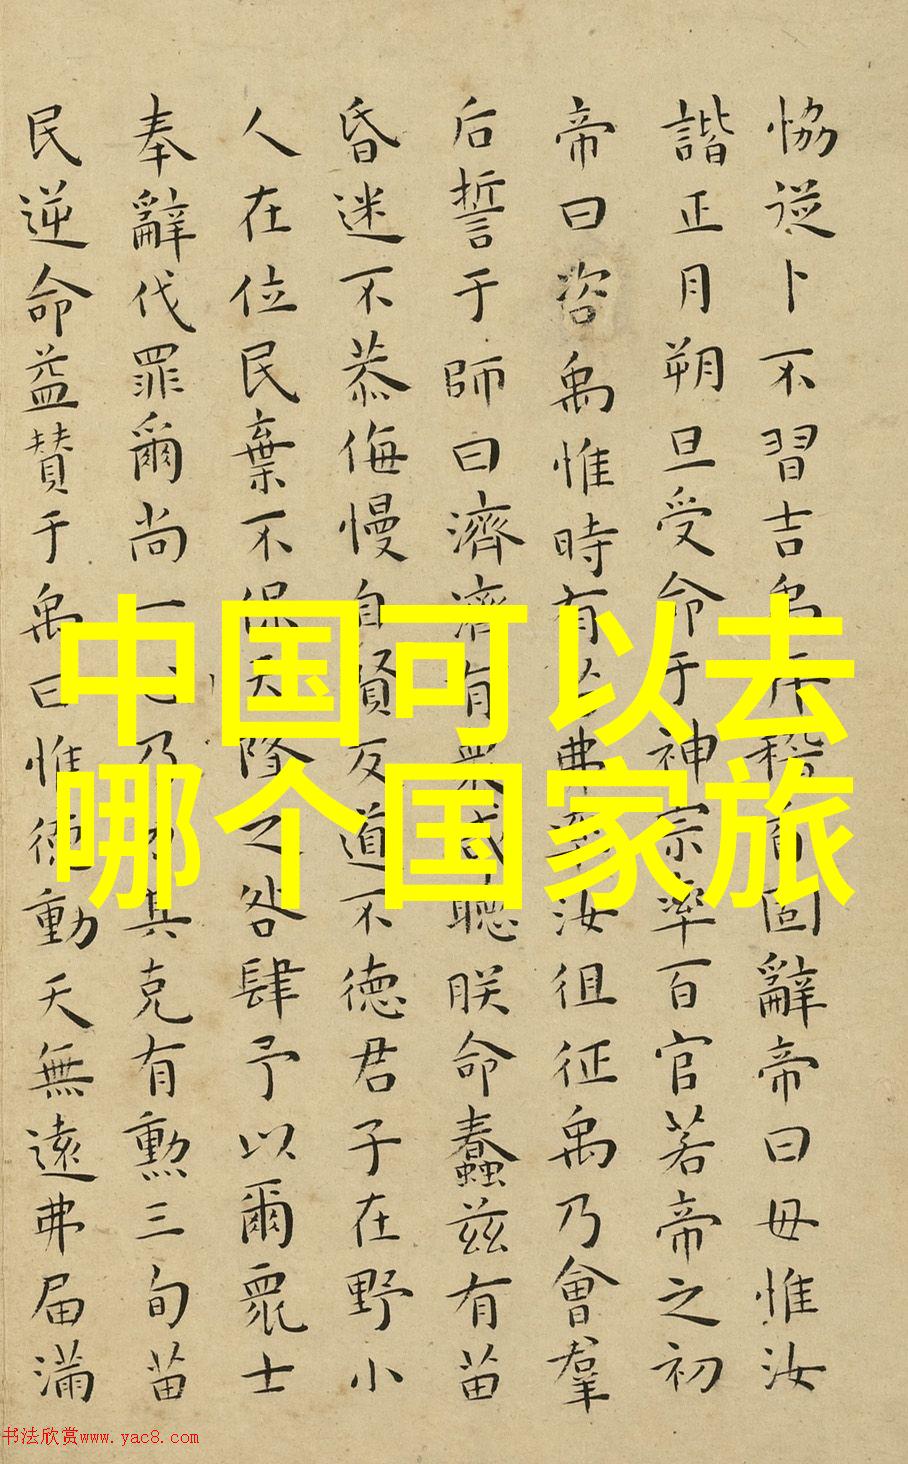 恊從卜不習吉禹拜稽首固辭帝曰毋惟汝
諧正月朔旦受命于神宗率百官若帝之初
帝曰咨禹惟時有苗弗率汝徂征禹乃會羣
后誓于師曰濟濟有衆咸聽朕命蠢茲有苗
昏迷不恭侮慢自賢反道不德君子在野小
人在位民棄不保天降之咎肆予以爾衆士
奉辭伐罪爾尚一心乃力其克有勲三旬苗
民逆命益贊于禹曰惟德動天無遠弗届滿
中国可以去
哪个国家旅
书法欣赏www.yac8.com